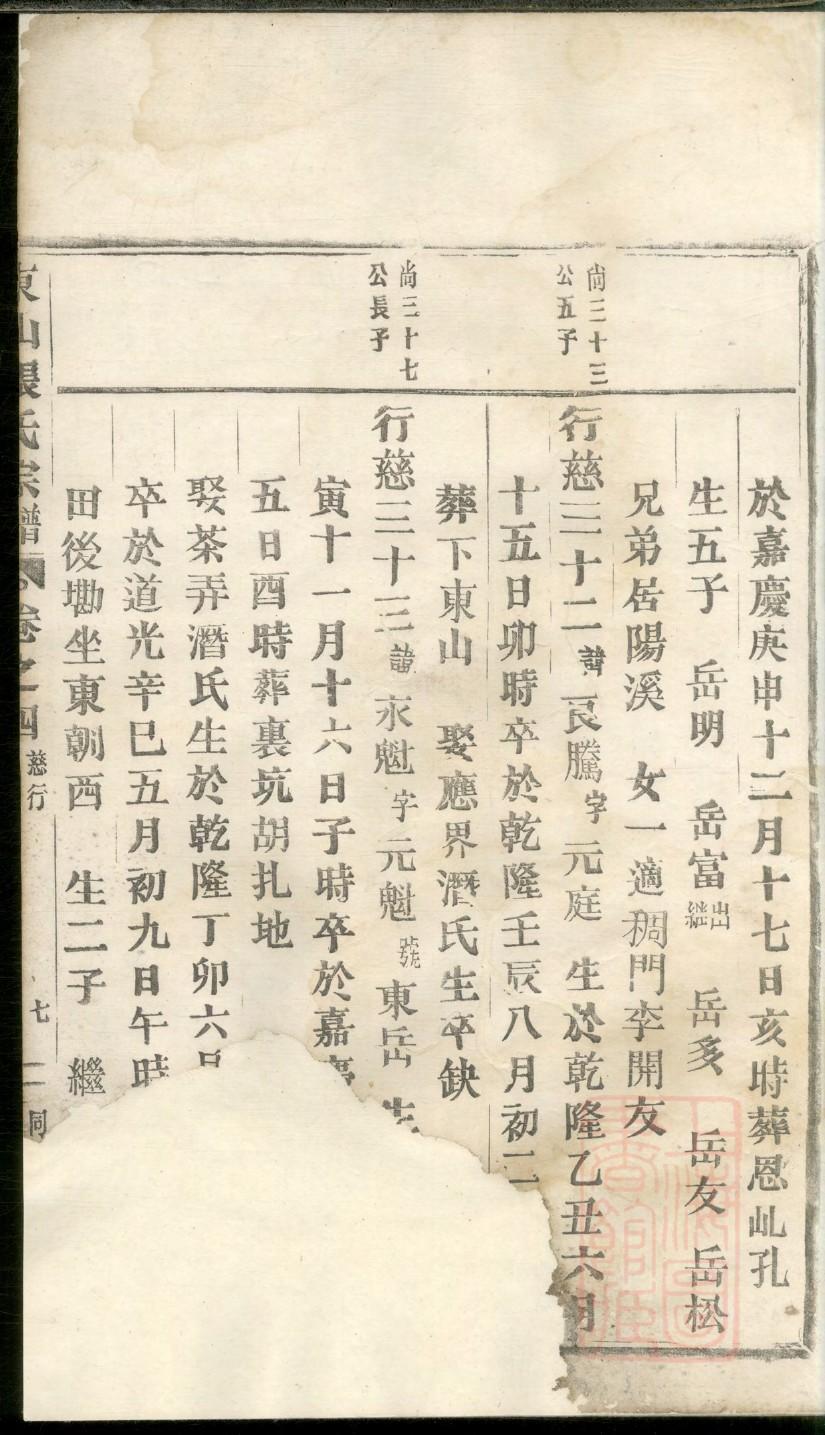 於嘉慶庚申十二月十七日亥時葬恩乢孔
生五子　岳明　岳富出繼　岳多　岳友　岳松
兄弟居陽溪　女一適稠門李開友
尚三十三
公五子
行慈三十二諱良騰字元庭　生於乾隆乙丑六月
十五日卯時卒於乾隆壬辰八月初二
葬下東山　娶應界潛氏生卒缺
尚三十七
公長子
行慈三十三諱永魁字元魁號東岳　生
寅十一月十六日子時卒於嘉慶
五日酉時葬裏坑胡扎地
娶茶弄潛氏生於乾隆丁卯六月
卒於道光辛巳五月初九日午時
田後墈坐東朝西　生二子　繼
東山張氏宗譜　卷之四　慈行　七　同